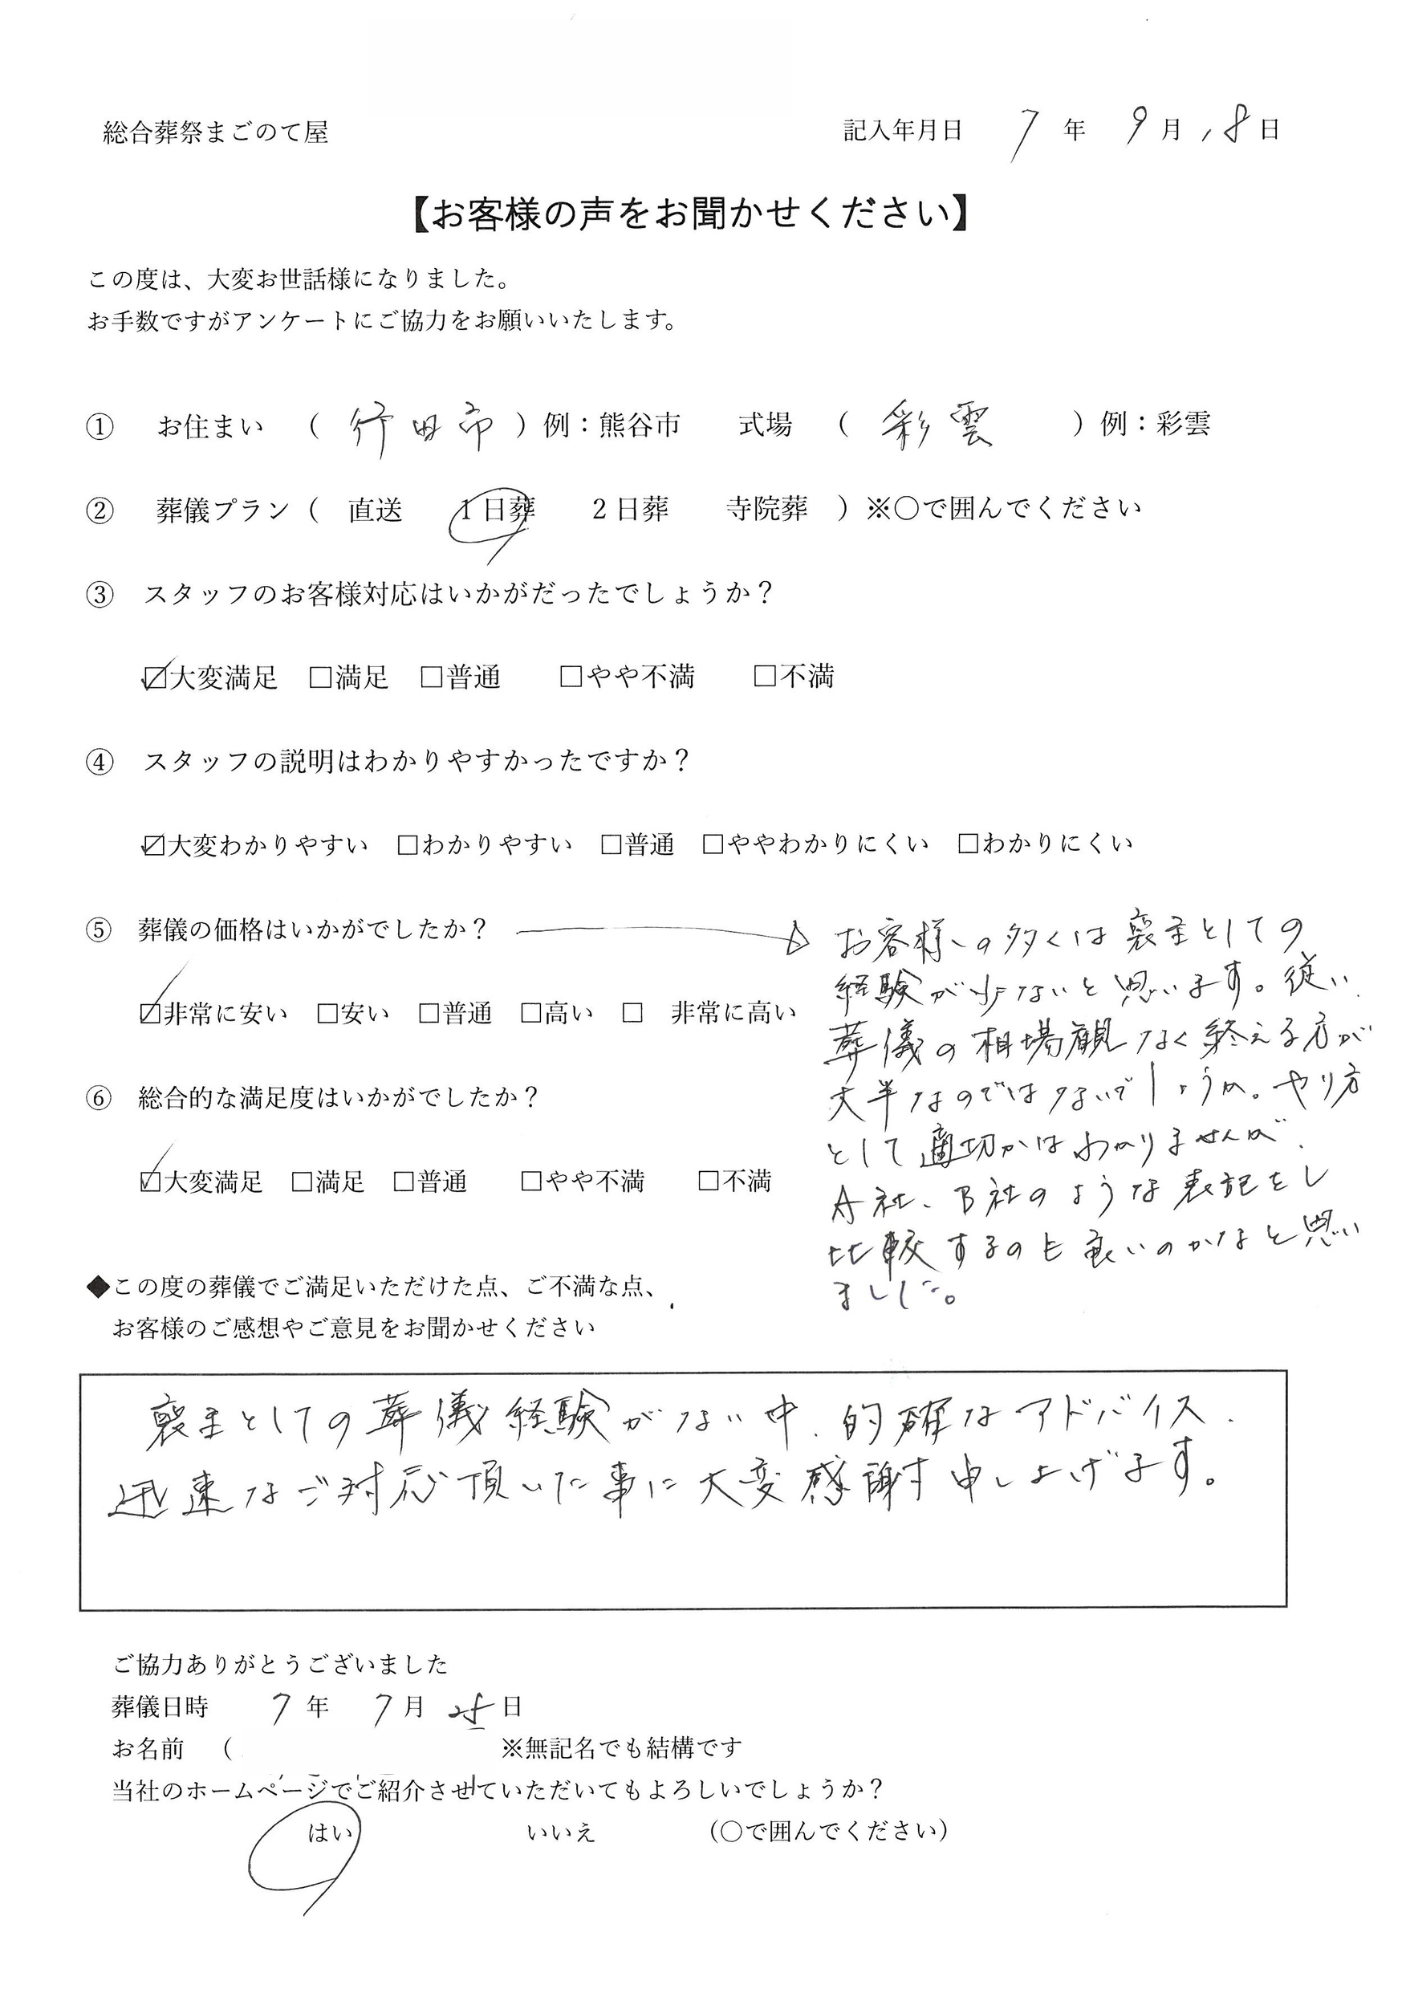 総合葬祭まごのて屋　記入年月日 7 年 9 月 18 日
【お客様の声をお聞かせください】
この度は、大変お世話様になりました。
お手数ですがアンケートにご協力をお願いいたします。
① お住まい （ 行田市 ）例：熊谷市 式場 （ 彩雲 ）例：彩雲
② 葬儀プラン（ 直送 1日葬 2日葬 寺院葬 ）※○で囲んでください
③ スタッフのお客様対応はいかがだったでしょうか？
☑大変満足 □満足 □普通 □やや不満 □不満
④ スタッフの説明はわかりやすかったですか？
☑大変わかりやすい □わかりやすい □普通 □ややわかりにくい □わかりにくい
⑤ 葬儀の価格はいかがでしたか？
☑非常に安い □安い □普通 □高い □ 非常に高い
お客様の多くは喪主としての
経験が少ないと思います。従い、
葬儀の相場観なく終える方が
大半なのではないでしょうか。やり方
として適切かはわかりませんが、
A社、B社のような表記をし
比較するのも良いのかなと思い
ました。
⑥ 総合的な満足度はいかがでしたか？
☑大変満足 □満足 □普通 □やや不満 □不満
◆この度の葬儀でご満足いただけた点、ご不満な点、
お客様のご感想やご意見をお聞かせください
喪主としての葬儀経験がない中、的確なアドバイス、
迅速なご対応頂いた事に大変感謝申し上げます。
ご協力ありがとうございました
葬儀日時 7 年 7 月 25 日
お名前 （ ※無記名でも結構です
当社のホームページでご紹介させていただいてもよろしいでしょうか？
はい いいえ （○で囲んでください）